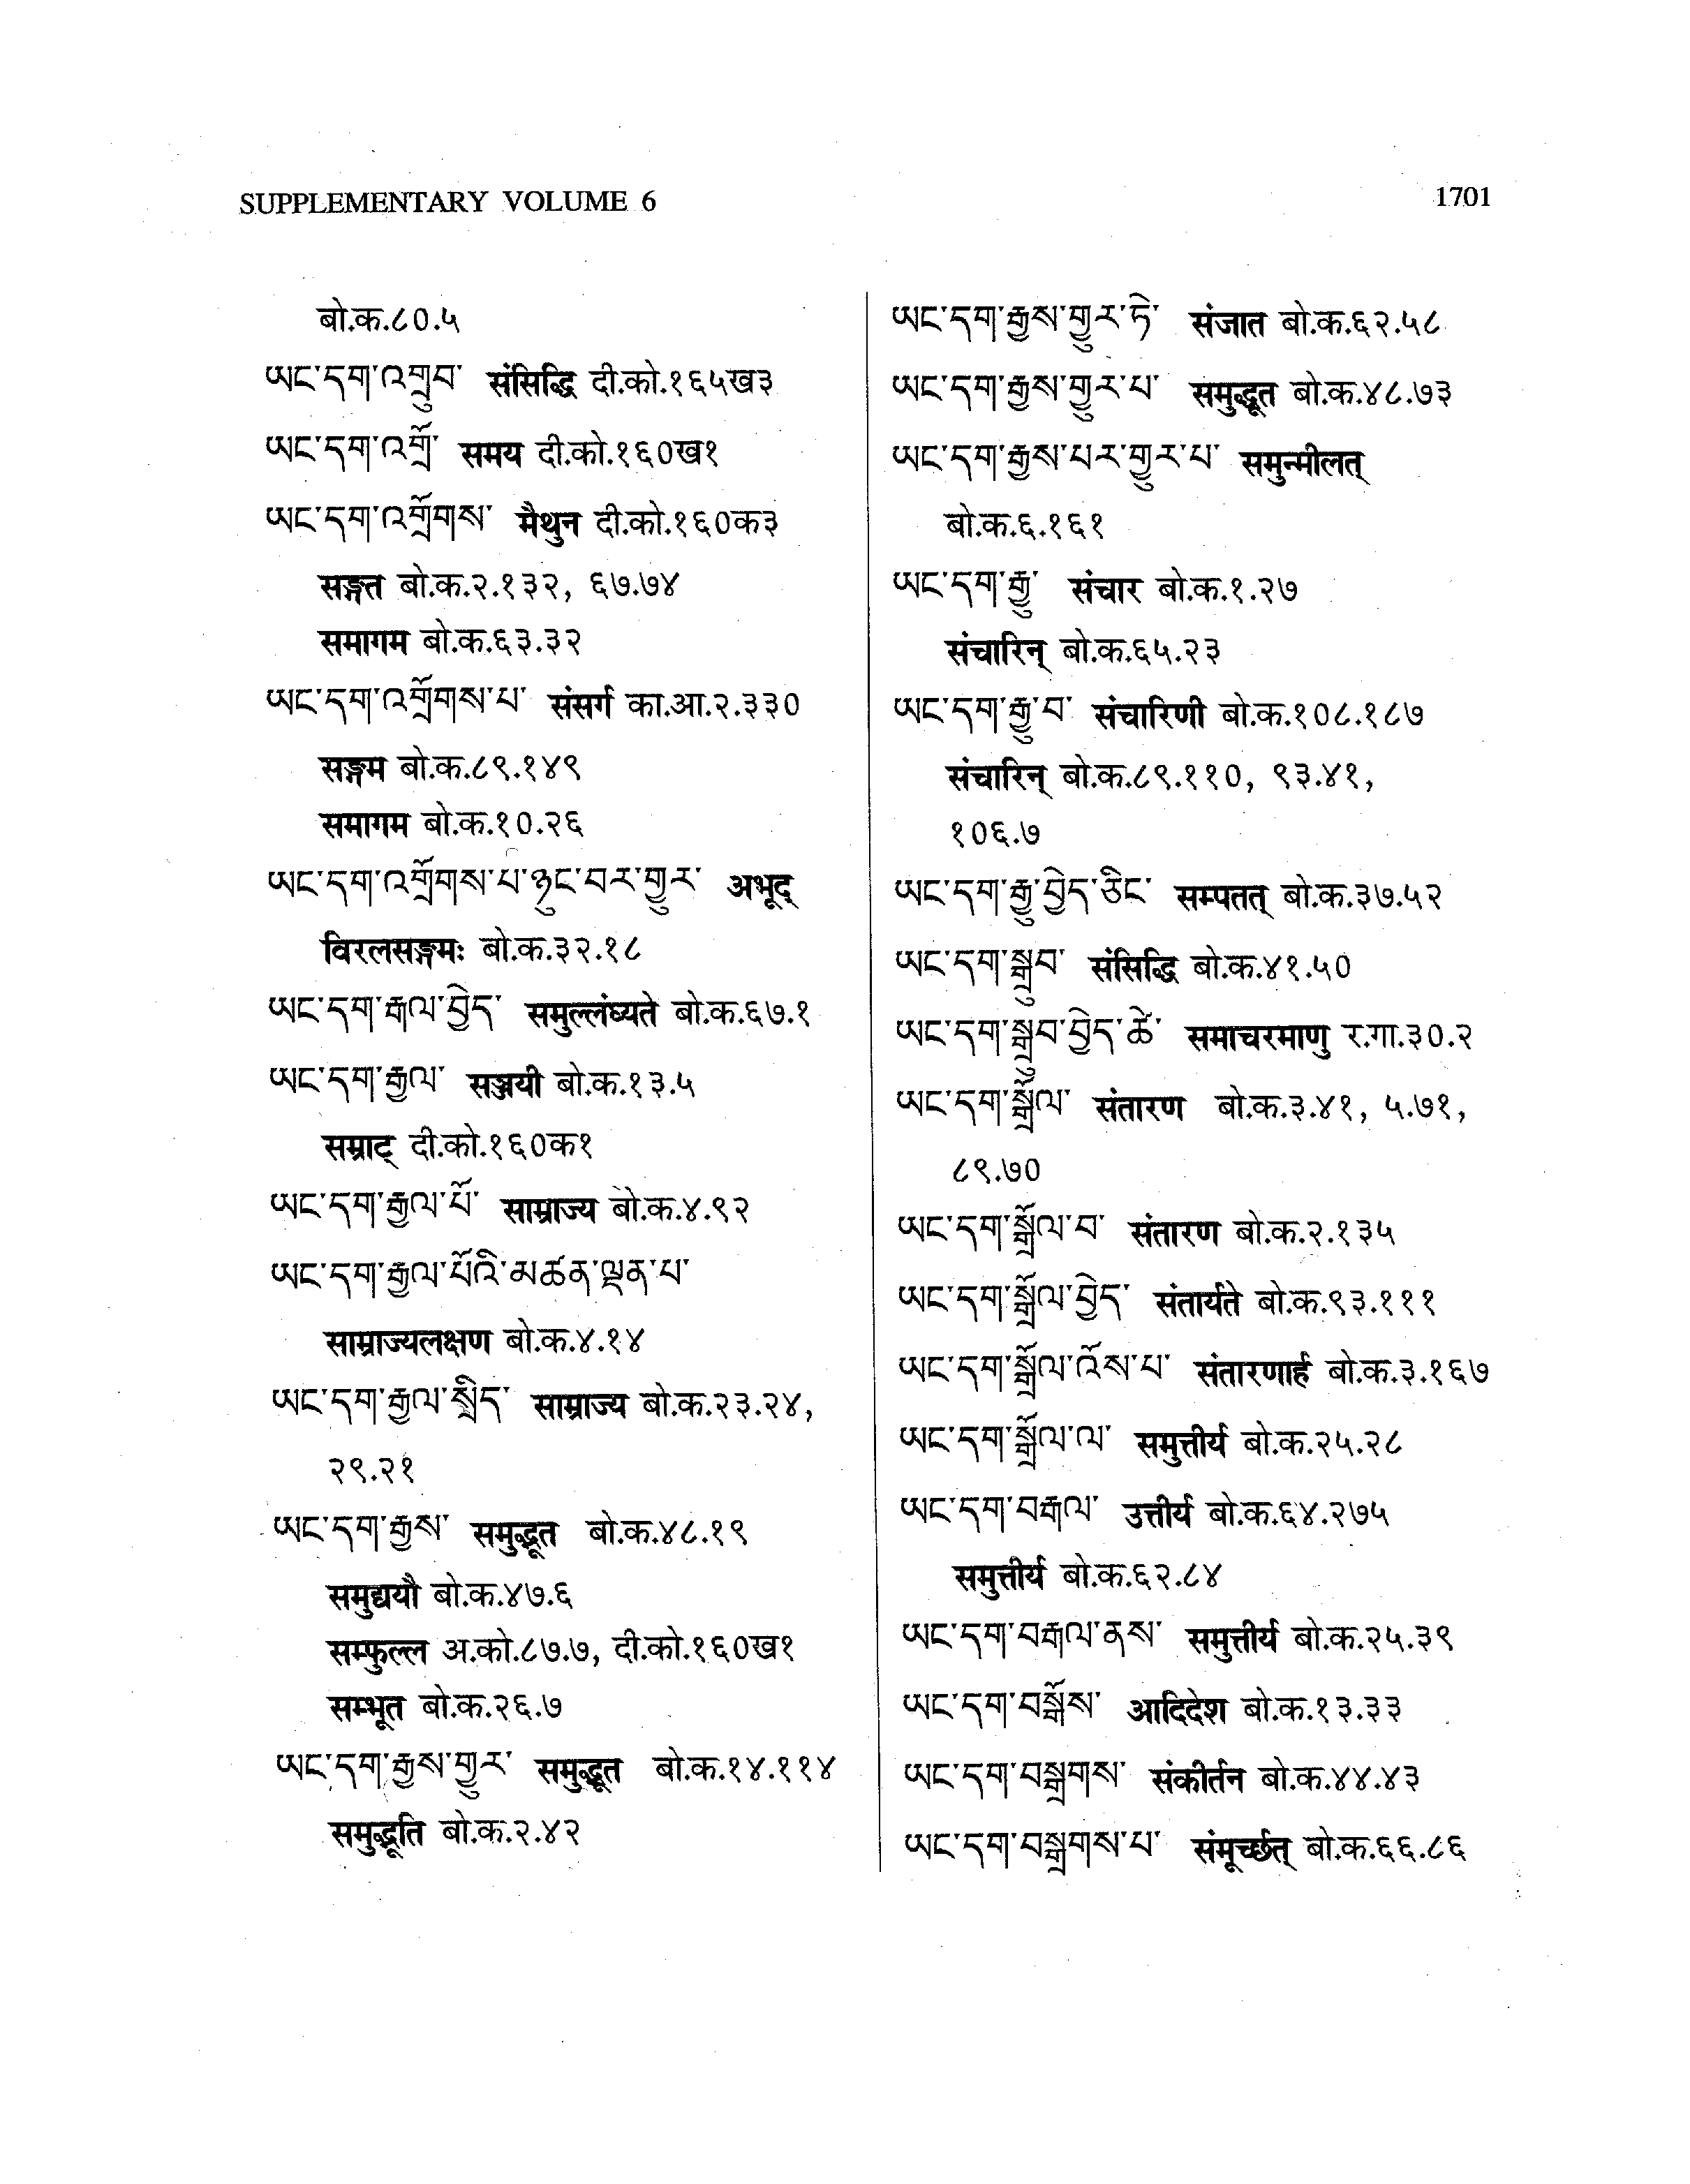 SUPPLEMENTARY VOLUME 6
1701
बो.क.८०.५
ཡང་དག་འགྲུབ་ संसिद्धि दी.को.१६५ख३
ཡང་དག་འགྲོ་ समय दी.को.१६०ख१
ཡང་དག་འགྲོགས་ मैथुन दी.को.१६०क३
सङ्गत बो.क.२.१३२, ६७.७४
समागम बो.क.६३.३२
ཡང་དག་འགྲོགས་པ་ संसर्ग का.आ.२.३३०
सङ्गम बो.क.८९.१४९
समागम बो.क.१०.२६
ཡང་དག་འགྲོགས་པ་ཉུང་བར་གྱུར་ अभूद्
विरलसङ्गमः बो.क.३२.१८
ཡང་དག་རྒལ་བྱེད་ समुल्लंघ्यते बो.क.६७.१
ཡང་དག་རྒྱལ་ सञ्जयी बो.क.१३.५
सम्राट् दी.को.१६०क१
ཡང་དག་རྒྱལ་པོ་ साम्राज्य बो.क.४.९२
ཡང་དག་རྒྱལ་པོའི་མཚན་ལྡན་པ་
साम्राज्यलक्षण बो.क.४.१४
ཡང་དག་རྒྱལ་སྲིད་ साम्राज्य बो.क.२३.२४,
२९.२१
ཡང་དག་རྒྱས་ समुद्भूत बो.क.४८.१९
समुद्ययौ बो.क.४७.६
सम्फुल्ल अ.को.८७.७, दी.को.१६०ख१
सम्भूत बो.क.२६.७
ཡང་དག་རྒྱས་གྱུར་ समुद्भूत बो.क.१४.११४
समुद्भूति बो.क.२.४२
ཡང་དག་རྒྱས་གྱུར་ཏེ་ संजात बो.क.६२.५८
ཡང་དག་རྒྱས་གྱུར་པ་ समुद्भूत बो.क.४८.७३
ཡང་དག་རྒྱས་པར་གྱུར་པ་ समुन्मीलत्
बो.क.६.१६१
ཡང་དག་རྒྱུ་ संचार बो.क.१.२७
संचारिन् बो.क.६५.२३
ཡང་དག་རྒྱུ་བ་ संचारिणी बो.क.१०८.१८७
संचारिन् बो.क.८९.११०, ९३.४१,
१०६.७
ཡང་དག་རྒྱུ་བྱེད་ཅིང་ सम्पतत् बो.क.३७.५२
ཡང་དག་སྒྲུབ་ संसिद्धि बो.क.४१.५०
ཡང་དག་སྒྲུབ་བྱེད་ཚེ་ समाचरमाणु र.गा.३०.२
ཡང་དག་སྒྲོལ་ संतारण बो.क.३.४१, ५.७१,
८९.७०
ཡང་དག་སྒྲོལ་བ་ संतारण बो.क.२.१३५
ཡང་དག་སྒྲོལ་བྱེད་ संतार्यते बो.क.९३.१११
ཡང་དག་སྒྲོལ་འོས་པ་ संतारणार्ह बो.क.३.१६७
ཡང་དག་སྒྲོལ་ལ་ समुत्तीर्य बो.क.२५.२८
ཡང་དག་བརྒལ་ उत्तीर्य बो.क.६४.२७५
समुत्तीर्य बो.क.६२.८४
ཡང་དག་བརྒལ་ནས་ समुत्तीर्य बो.क.२५.३९
ཡང་དག་བསྒོས་ आदिदेश बो.क.१३.३३
ཡང་དག་བསྒྲགས་ संकीर्तन बो.क.४४.४३
ཡང་དག་བསྒྲགས་པ་ संमूर्च्छत् बो.क.६६.८६